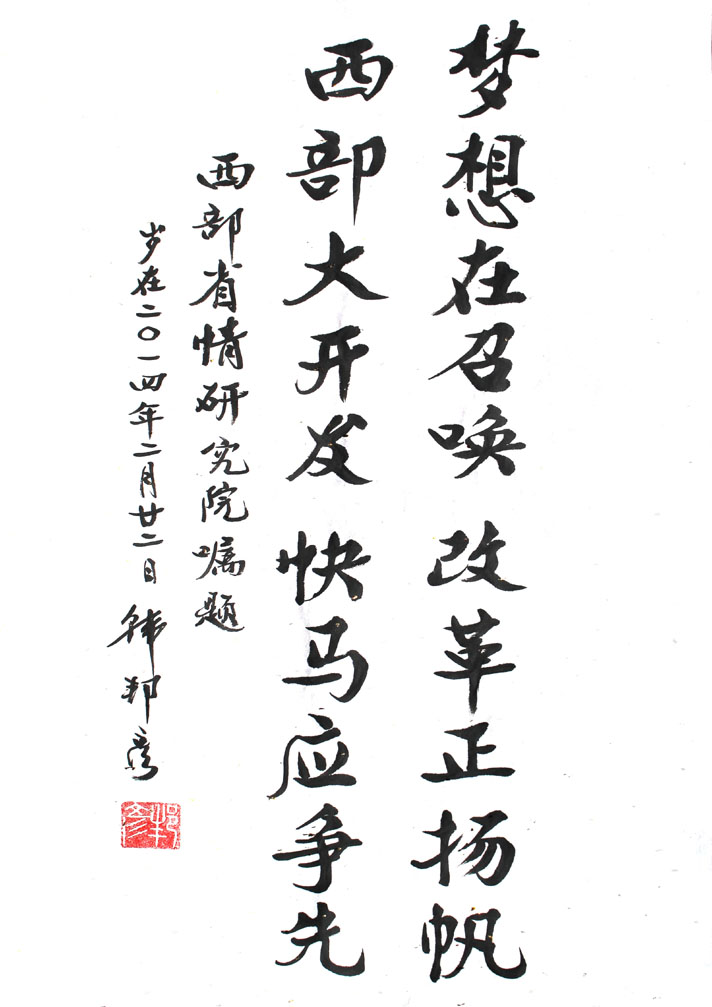 梦想在召唤 改革正扬帆
西部大开发 快马应争先
西部省情研究院嘱题
岁在二〇一四年二月廿二日 韩邦彦
邦彦